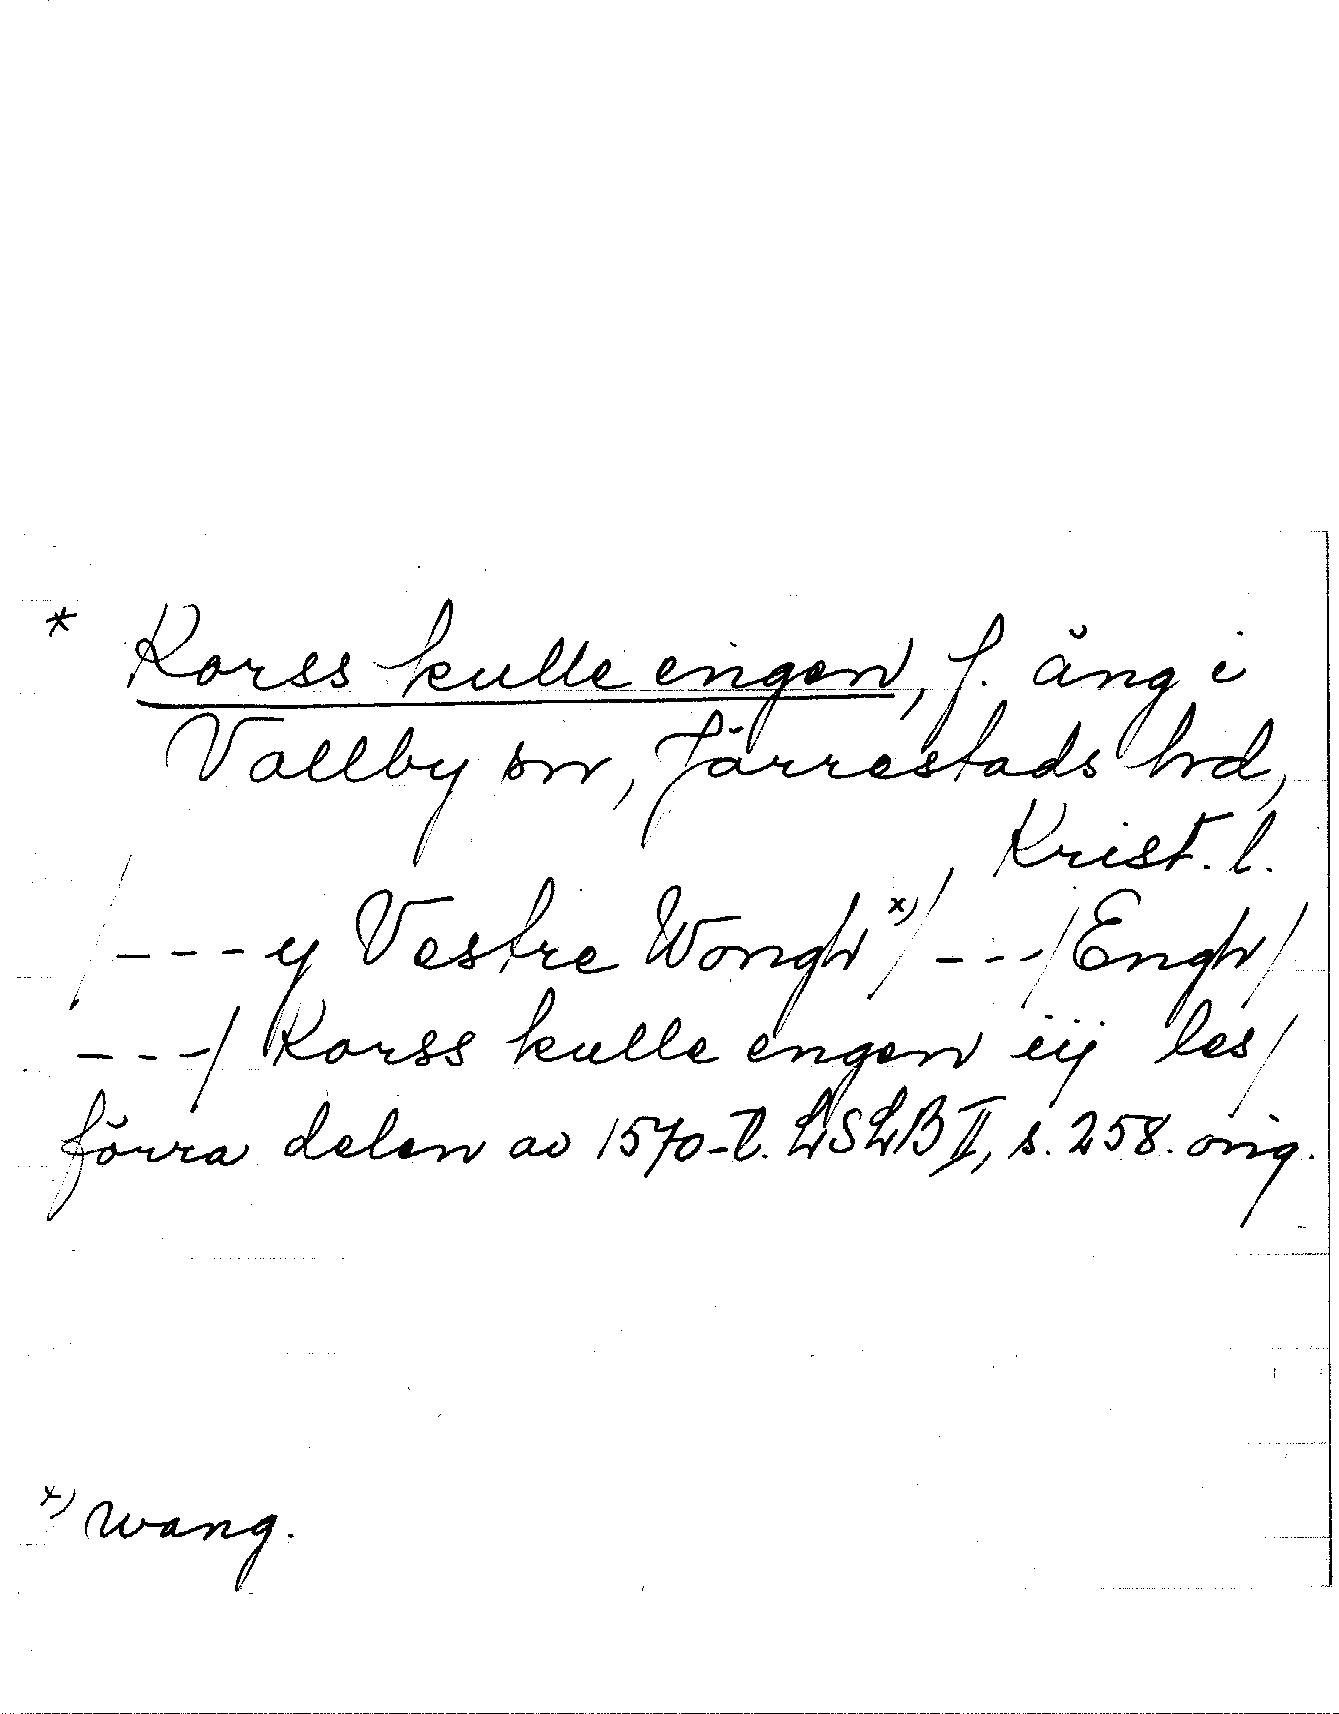 * Korss kulle eingen, f. äng i
Vallby sn, Järrestads hrd,
Krist. l.
/---y Vestre Wongh x)/ ---/Engh/
---/ Korss kulle engen iij les/
förra delen av 1570-t. LSLB II, s. 258. orig.
x) wang.